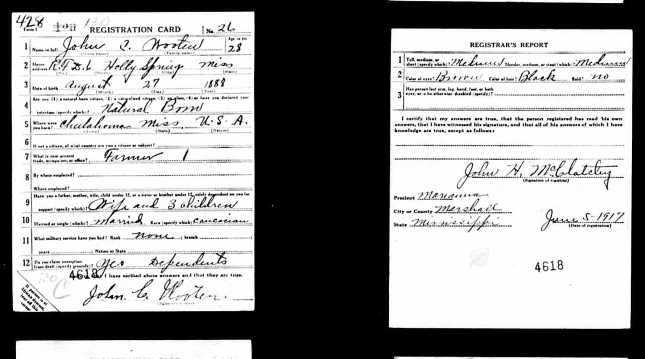 428
REGISTRATION CARD No. 26
1 Name in full John C. Wooten Age in yrs 28
2 Home address R.F.D. 6 Holly Spring Miss
3 Date of birth August 27 1888
4 Natural Born
5 Where were you born? Chulahoma Miss U.S.A.
6 If not a citizen, of what country are you a citizen or subject?
7 What is your present trade, occupation, or office? Farmer 1
8 By whom employed?
Where employed?
9 Have you a father, mother, wife, child under 12, or a sister or brother under 12, solely dependent on you for
support (specify which)? Wife and 3 children
10 Married or single (which)? Married Race (specify which)? Caucasian
11 What military service have you had? Rank none ; branch
years ; Nation or State
12 Do you claim exemption from draft (specify grounds)? Yes Dependents
4618 I have verified above answers and that they are true.
John C. Wooten.
REGISTRAR'S REPORT
1 Tall, medium, or short (specify which)? Medium Slender, medium, or stout (which)? Medium
2 Color of eyes? Brown Color of hair? Black Bald? no
3 Has person lost arm, leg, hand, foot, or both
eyes, or is he otherwise disabled (specify)?
I certify that my answers are true, that the person registered has read his own
answers, that I have witnessed his signature, and that all of his answers of which I have
knowledge are true, except as follows:
John H. McClatchy
(Signature of registrar)
Precinct Marianna
City or County Marshall
State Mississippi
June 5-1917
(Date of registration)
4618
REGISTRATION CARD